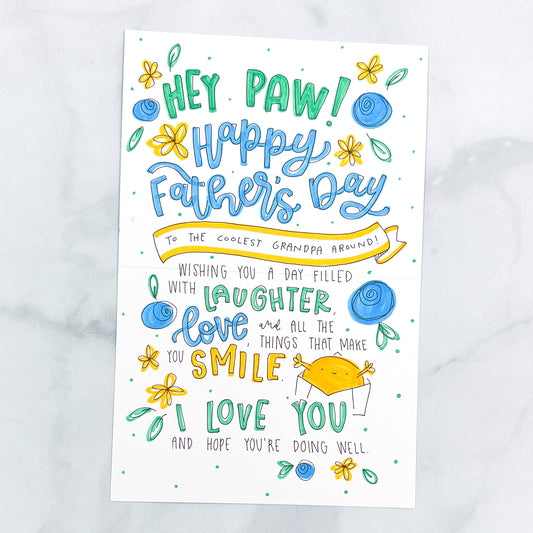 HEY PAW!
Happy
Father's Day
TO THE COOLEST GRANDPA AROUND!
WISHING YOU A DAY FILLED
WITH LAUGHTER,
love, and ALL THE
THINGS THAT MAKE
YOU SMILE.
I LOVE YOU
AND HOPE YOU'RE DOING WELL.